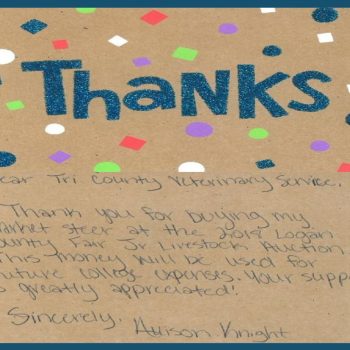 THANKS
ear Tri County Veterinary Service,
Thank you for buying my
arket steer at the 2018 Logan
ounty Fair Jr. Livestock Auction.
This money will be used for
uture college expenses. Your suppo
s greatly appreciated!
Sincerely,
Allison Knight